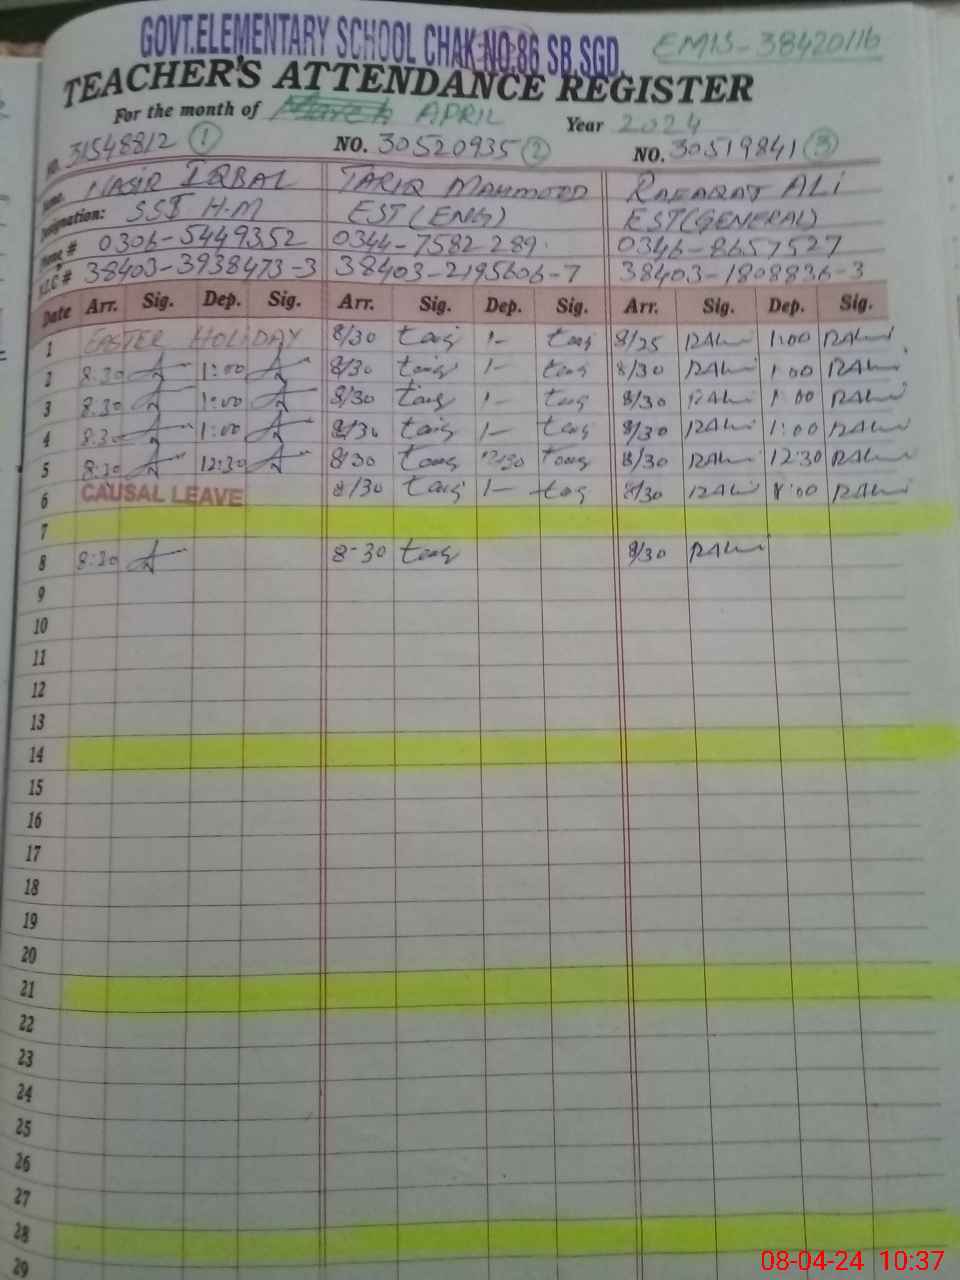 GOVT.ELEMENTARY SCHOOL CHAK NO.86 SB.SGD.
EMIS-38420116
TEACHER'S ATTENDANCE REGISTER
For the month of March APRIL
Year 2024
NO. 31548812 1 NO. 30520935 2 NO. 30519841 3
Name. NASIR IQBAL TARIQ MAHMOOD RAFAQAT ALI
Designation: SST H-M EST(ENG) EST(GENERAL)
# 0306-5449352 0344-7582289. 0346-8657527
# 38403-3938473-3 38403-2195606-7 38403-1808836-3
Date Arr. Sig. Dep. Sig. Arr. Sig. Dep. Sig. Arr. Sig. Dep. Sig.
1 EASTER HOLIDAY 8/30 1- 8/25 1:00
2 8:30 1:00 8/30 1- 8/30 1:00
3 8.30 1:00 8/30 1- 8/30 1:00
4 8.30 1:00 8/30 1- 8/30 1:00
5 8:30 12:30 8:30 12:30 8/30 12:30
6 CAUSAL LEAVE 8/30 1- 8/30
7
8 8:30 8-30 8/30
9
10
11
12
13
14
15
16
17
18
19
20
21
22
23
24
25
26
27
28
29
08-04-24 10:37